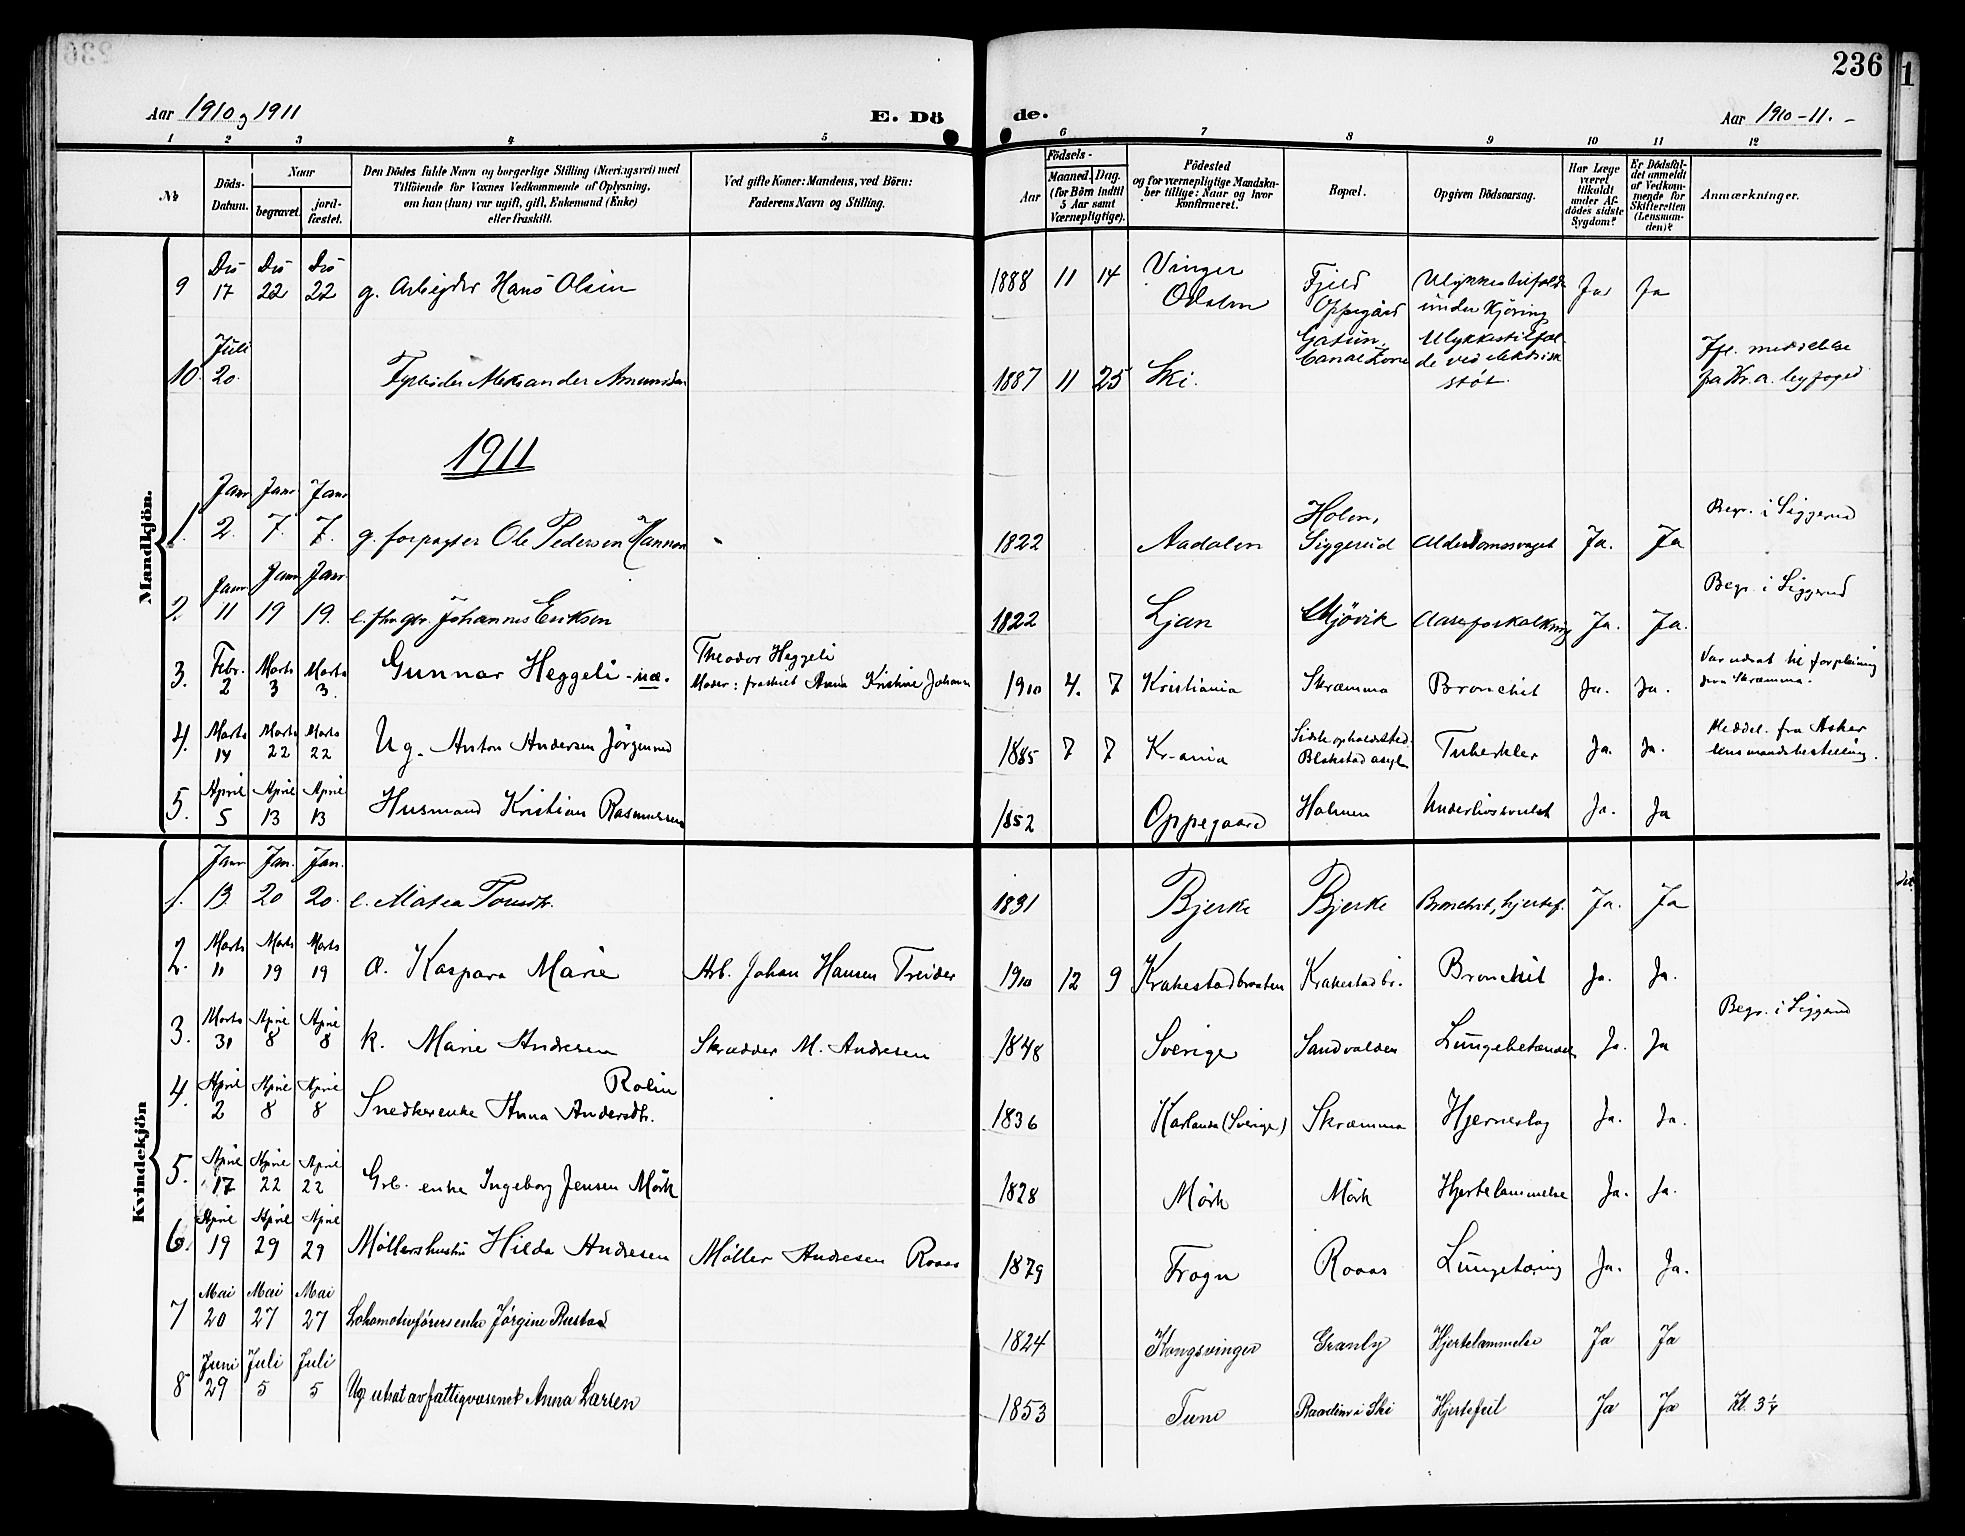 236
Aar 1910 og 1911
E. Dö
de.
Aar 1910-11.
1 2 3 4 5 6 7 8 9 10 11 12
No
Döds-Datum.
Naar
begravet.
jord-fæstet.
Den Dödes fulde Navn og borgerlige Stilling (Næringsvei) med
Tilföiende for Voxnes Vedkommende af Oplysning,
om han (hun) var ugift, gift, Enkemand (Enke)
eller fraskilt.
Ved gifte Koner: Mandens, ved Börn:
Faderens Navn og Stilling.
Födsels-
Aar
Maaned. Dag.
(for Börn indtil
5 Aar samt
Værnepligtige).
Födested
og for værnepligtige Mandska-
ber tillige: Naar og hvor
konfirmeret.
Bopæl.
Opgiven Dödsaarsag.
Har Læge
været
tilkaldt
under Af-
dödes sidste
Sygdom?
Er Dödsfal-
det anmeldt
af Vedkom-
mende for
Skifteretten
(Lensman-
den)?
Anmærkninger.
Mandkjön.
9 17 22 22 g. Arbeider Hans Olsen 1888 11 14 Vinger Odalen Fjeld Oppegård Ulykkestilfælde under Kjöring Ja Ja
10. Juli 20. Alexander Amundsen 1887 11 25 Ski. Gatun, Canal Zone Ulykkestilfælde ved elektrisk stöt.
1911
1. Janr 2. Janr 7. Janr 7. g. forpagter Ole Pedersen 1822 Aadalen Siggerud Ja. Ja Begr. i Siggerud
2. Janr 11 Janr 19 Janr 19. Johannes Eriksen 1822 Ljan Ja. Ja. Begr. i Siggerud
3. Febr. 2 Marts 3 Marts 3. Gunnar Heggeli Theodor Heggeli
Moder: fraskilt Anna Kristine 1910 4. 7 Kristiania Skræmma Bronchit Ja. Ja. Var udsat til forpleining
Skræmma.
4. Marts 14 Marts 22 Marts 22 Ug. Anton Andersen 1885 7 7 Kr-ania Sidste opholdssted:
Blakstad asyl Tuberkler Ja. Ja. Meddel. fra Asker
lensmandsbestilling.
5. April 5 April 13 April 13 Husmand Kristian Rasmussen 1852 Oppegaard Holmen Ja. Ja
Kvindekjön
1. Janr 13. Jan. 20 Jan. 20. e. 1831 Bjerke Bjerke Bronchit, hjertef. Ja. Ja
2. Marts 11 Marts 19 Marts 19 Kaspara Marie Arb. Johan Hansen Treider 1910 12 9 Krakestadbraaten Krakestadbr. Bronchit Ja. Ja.
3. Marts 31 April 8 April 8 k. Marie Andresen Skrædder M. Andresen 1848 Sverige Sandvolden Ja. Ja Begr. i Siggerud
4. April 2 April 8 April 8 Snedkerenke Anna Andersdtr. Rolin 1836 Karlanda (Sverige) Skræmma Hjerneslag Ja. Ja.
5. April 17 April 22 April 22 Grb. enke Ingeborg Jensen Mörk 1828 Mörk Mörk Hjertelammelse Ja. Ja.
6. April 19 April 29 April 29 Möllershustru Hilda Andresen Möller Andresen Roaas 1879 Frogn Roaas Lungetæring Ja. Ja.
7 Mai 20 Mai 27 Mai 27 Lokomotivförersenke Jörgine Rustad 1824 Kongsvinger Granly Hjertelammelse Ja Ja
8 Juni 29 Juli 5 Juli 5 Ug utsat av fattigvæsenet Anna Larsen 1853 Tune i Ski Hjertefeil Ja Ja Kl. 3 1/4